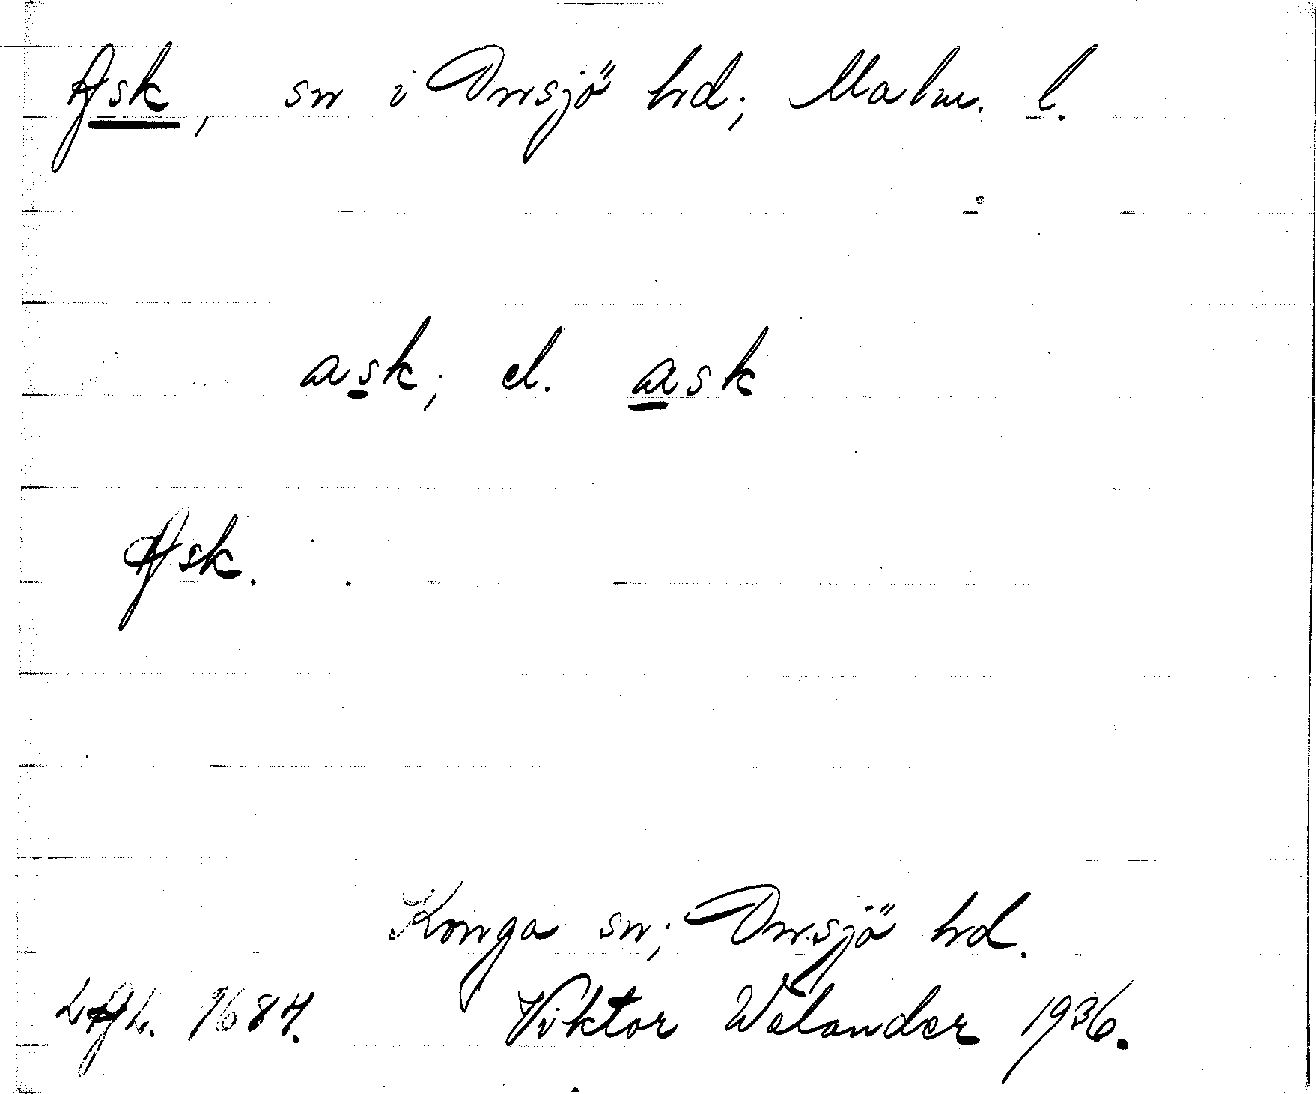 Ask, sn i Onsjö hrd; Malm. l.
ask; el. ask
Ask.
Konga sn; Onsjö hrd.
LAL. 1684. Viktor Welander 1936.